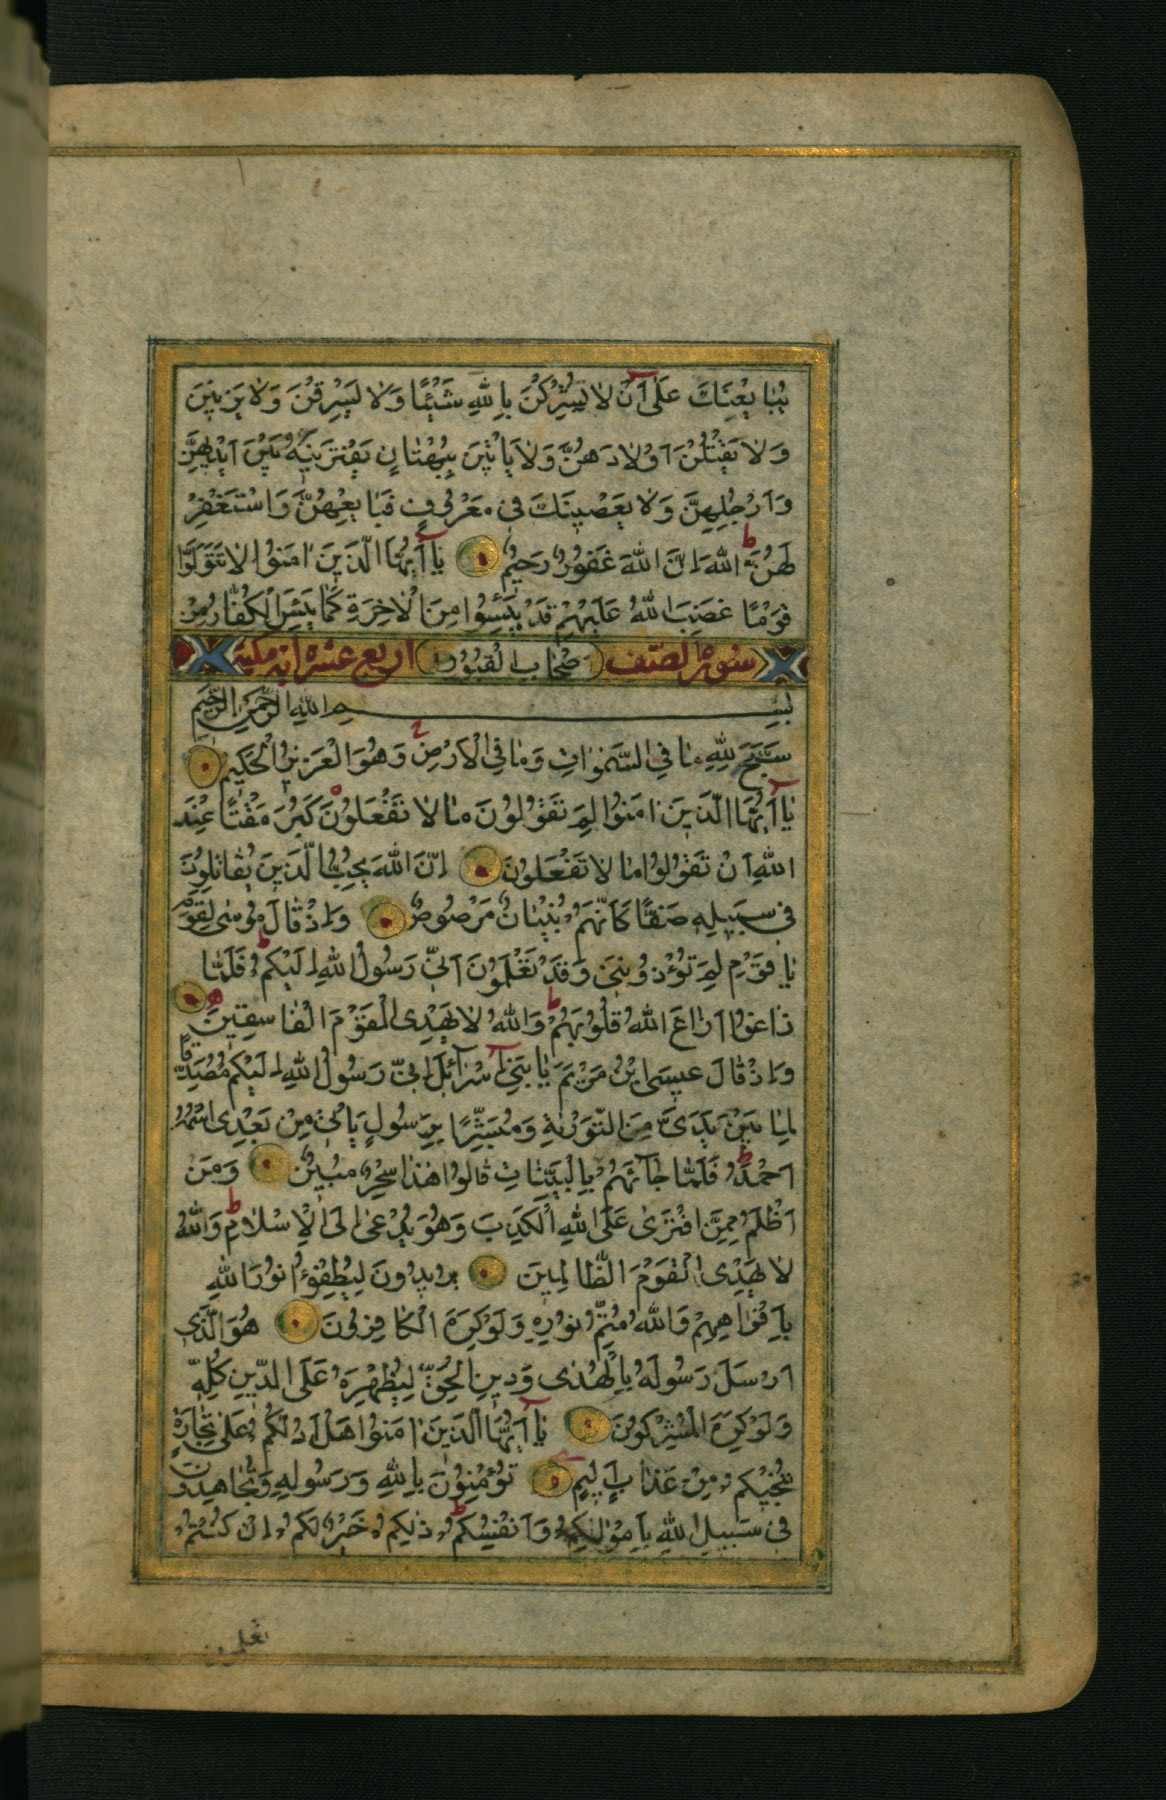 يُبَايِعْنَكَ عَلَىٰ أَنْ لَا يُشْرِكْنَ بِاللّٰهِ شَيْئًا وَلَا يَسْرِقْنَ وَلَا يَزْنِينَ
وَلَا يَقْتُلْنَ اَوْلَادَهُنَّ وَلَا يَاْتِينَ بِبُهْتَانٍ يَفْتَرِينَهُ بَيْنَ اَيْدِيهِنَّ
وَاَرْجُلِهِنَّ وَلَا يَعْصِينَكَ فِى مَعْرُوفٍ فَبَايِعْهُنَّ وَاسْتَغْفِرْ
لَهُنَّ اللّٰهَ اِنَّ اللّٰهَ غَفُورٌ رَحِيمٌ يَا اَيُّهَا الَّذِينَ اٰمَنُوا لَا تَتَوَلَّوْا
قَوْمًا غَضِبَ اللّٰهُ عَلَيْهِمْ قَدْ يَئِسُوا مِنَ الْاٰخِرَةِ كَمَا يَئِسَ الْكُفَّارُ مِنْ
سورة الصف اَصْحَابِ الْقُبُورِ اربع عشره آية مكية
بِسْمِ اللّٰهِ الرَّحْمٰنِ الرَّحِيمِ
سَبَّحَ لِلّٰهِ مَا فِي السَّمٰوَاتِ وَمَا فِي الْاَرْضِ وَهُوَ الْعَزِيزُ الْحَكِيمُ
يَا اَيُّهَا الَّذِينَ اٰمَنُوا لِمَ تَقُولُونَ مَا لَا تَفْعَلُونَ كَبُرَ مَقْتًا عِنْدَ
اللّٰهِ اَنْ تَقُولُوا مَا لَا تَفْعَلُونَ اِنَّ اللّٰهَ يُحِبُّ الَّذِينَ يُقَاتِلُونَ
فِى سَبِيلِهِ صَفًّا كَاَنَّهُمْ بُنْيَانٌ مَرْصُوصٌ وَاِذْ قَالَ مُوسٰى لِقَوْمِهِ
يَا قَوْمِ لِمَ تُؤْذُونَنِى وَقَدْ تَعْلَمُونَ اَنِّى رَسُولُ اللّٰهِ اِلَيْكُمْ فَلَمَّا
زَاغُوا اَزَاغَ اللّٰهُ قُلُوبَهُمْ وَاللّٰهُ لَا يَهْدِى الْقَوْمَ الْفَاسِقِينَ
وَاِذْ قَالَ عِيسَى ابْنُ مَرْيَمَ يَا بَنِى اِسْرَآئِلَ اِنِّى رَسُولُ اللّٰهِ اِلَيْكُمْ مُصَدِّقًا
لِمَا بَيْنَ يَدَىَّ مِنَ التَّوْرٰيةِ وَمُبَشِّرًا بِرَسُولٍ يَاْتِى مِنْ بَعْدِى اسْمُهُ
اَحْمَدُ فَلَمَّا جَآئَهُمْ بِالْبَيِّنَاتِ قَالُوا هٰذَا سِحْرٌ مُبِينٌ وَمَنْ
اَظْلَمُ مِمَّنِ افْتَرٰى عَلَى اللّٰهِ الْكَذِبَ وَهُوَ يُدْعٰى اِلَى الْاِسْلَامِ وَاللّٰهُ
لَا يَهْدِى الْقَوْمَ الظَّالِمِينَ يُرِيدُونَ لِيُطْفِؤُا نُورَ اللّٰهِ
بِاَفْوَاهِهِمْ وَاللّٰهُ مُتِمُّ نُورِهِ وَلَوْ كَرِهَ الْكَافِرُونَ هُوَ الَّذِى
اَرْسَلَ رَسُولَهُ بِالْهُدٰى وَدِينِ الْحَقِّ لِيُظْهِرَهُ عَلَى الدِّينِ كُلِّهِ
وَلَوْ كَرِهَ الْمُشْرِكُونَ يَا اَيُّهَا الَّذِينَ اٰمَنُوا هَلْ اَدُلُّكُمْ عَلٰى تِجَارَةٍ
تُنْجِيكُمْ مِنْ عَذَابٍ اَلِيمٍ تُؤْمِنُونَ بِاللّٰهِ وَرَسُولِهِ وَتُجَاهِدُونَ
فِى سَبِيلِ اللّٰهِ بِاَمْوَالِكُمْ وَاَنْفُسِكُمْ ذٰلِكُمْ خَيْرٌ لَكُمْ اِنْ كُنْتُمْ
تعلمون